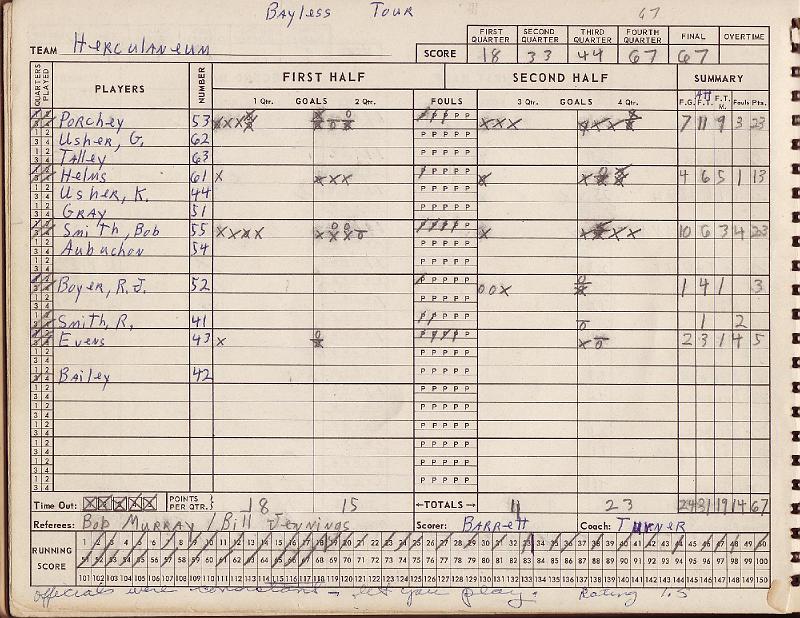 Bayless Tour 67
FIRST QUARTER SECOND QUARTER THIRD QUARTER FOURTH QUARTER FINAL OVERTIME
TEAM Herculaneum SCORE 18 33 44 67 67
QUARTERS PLAYED PLAYERS NUMBER FIRST HALF SECOND HALF SUMMARY
1 Qtr. GOALS 2 Qtr. FOULS 3 Qtr. GOALS 4 Qtr. F.G. Att F.T. F.T. M. Fouls Pts.
Porchey 53 7 11 9 3 23
Usher, G. 62
Talley 63
Helms 61 4 6 5 1 13
Usher, K. 44
Gray 51
Smith, Bob 55 10 6 3 4 23
Aubuchon 54
Boyer, R.J. 52 1 4 1 3
Smith, R. 41 1 2
Evens 43 2 3 1 4 5
Bailey 42
Time Out: 1 2 3 4 5 POINTS PER QTR. 18 15 ←TOTALS→ 11 23 24 31 19 14 67
Referees: Bob Murray / Bill Jennings Scorer: Barrett Coach: Turner
RUNNING SCORE
1 2 3 4 5 6 7 8 9 10 11 12 13 14 15 16 17 18 19 20 21 22 23 24 25 26 27 28 29 30 31 32 33 34 35 36 37 38 39 40 41 42 43 44 45 46 47 48 49 50
51 52 53 54 55 56 57 58 59 60 61 62 63 64 65 66 67 68 69 70 71 72 73 74 75 76 77 78 79 80 81 82 83 84 85 86 87 88 89 90 91 92 93 94 95 96 97 98 99 100
101 102 103 104 105 106 107 108 109 110 111 112 113 114 115 116 117 118 119 120 121 122 123 124 125 126 127 128 129 130 131 132 133 134 135 136 137 138 139 140 141 142 143 144 145 146 147 148 149 150
officials were - let you play. Rating 1.5